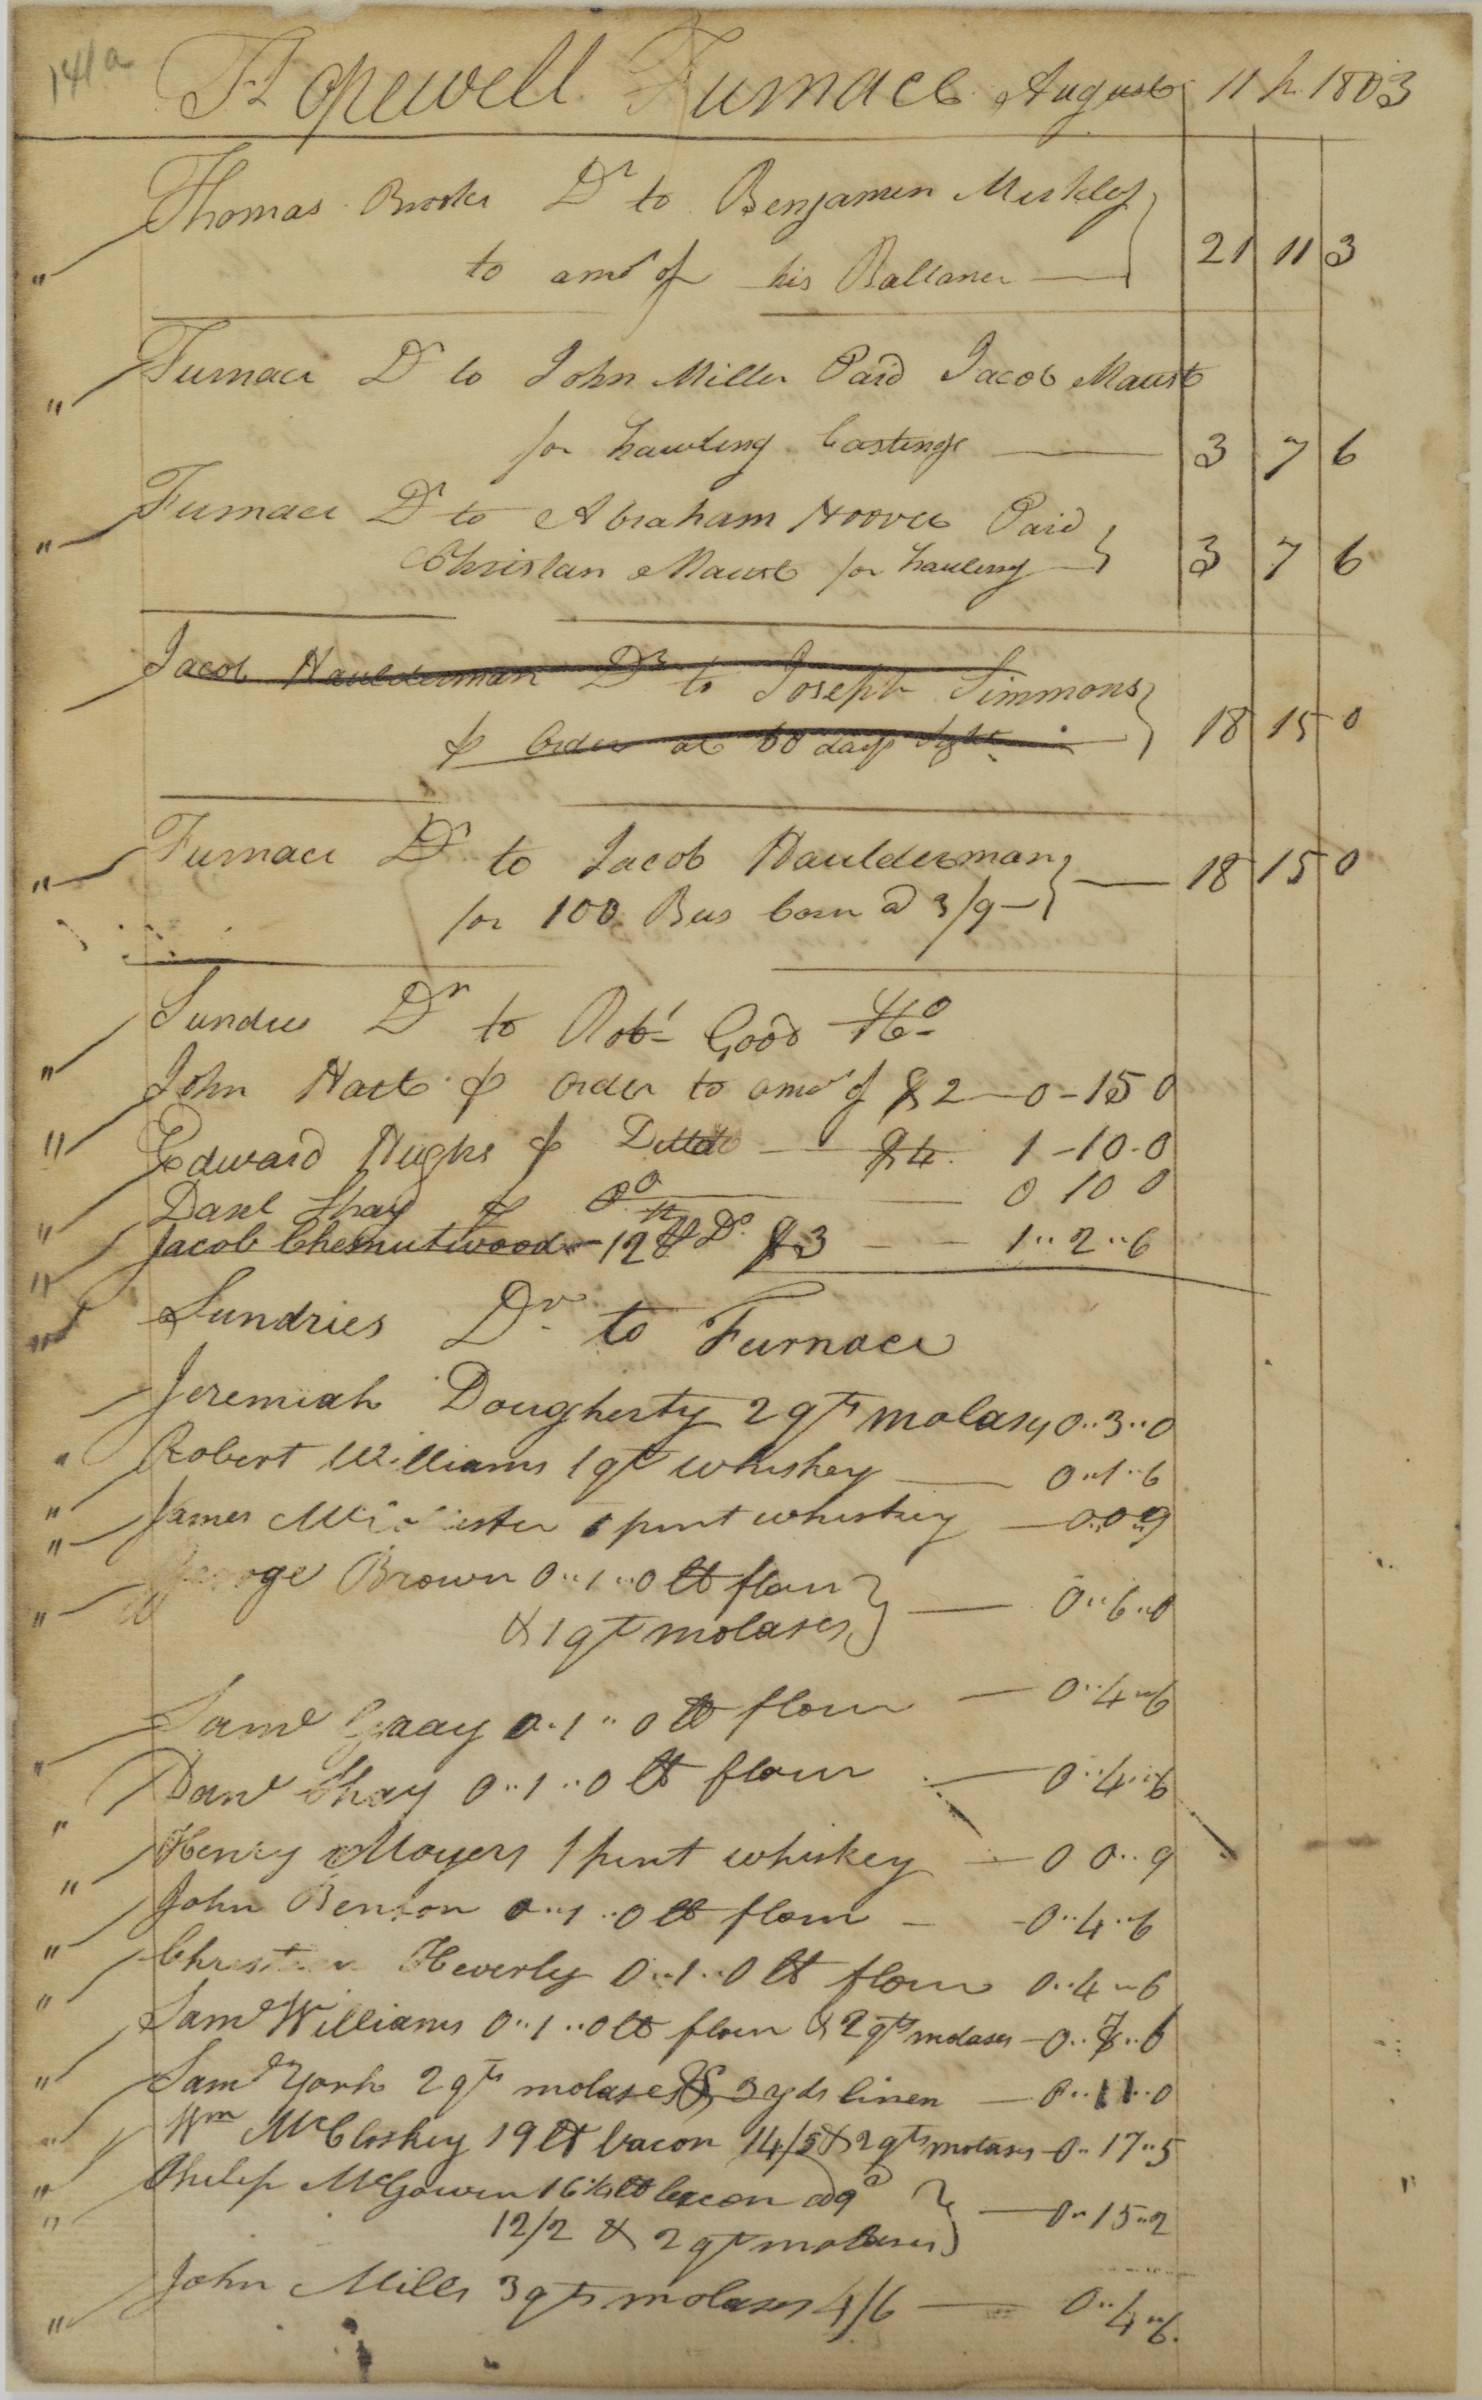 141a
Hopewell Furnace August 11th 1803
Thomas Brooke Dr to Benjamen Merkley
to amt of his Ballance — 21 11 3
Furnace Dr to John Miller Paid Jacob Maust
for hawling Castings — 3 7 6
Furnace Dr to Abraham Hoover Paid
Christian Maust for hauling — 3 7 6
Jacob Haulderman Dr to Joseph Simmons
⅌ Order at 60 days Sight — 18 15 0
Furnace Dr to Jacob Haulderman
for 100 Bus Corn @ 3/9 — 18 15 0
Sundries Dr to Robt Good
John Hart ⅌ Order to amt of $2 — 0-15 0
Edward Hughs ⅌ Ditto — $4. 1-10-0
Danl Shay ⅌ Do — 0 10 0
Jacob Chesnutwood — 12 lb Do $3 — 1..2..6
Sundries Dr to Furnace
Jeremiah Dougherty 2 qts molases 0..3..0
Robert Williams 1 qt whiskey — 0..1..6
James 1 pint whiskey — 0..0..9
George Brown 0..1..0 lb flour
& 1 qt molases — 0..6..0
Saml Graay 0..1..0 lb flour — 0..4..6
Danl Shay 0..1..0 lb flour — 0..4..6
Henry Moyers 1 pint whiskey — 0 0..9
John Benson 0..1..0 lb flour — 0..4..6
Christian Heverly 0..1..0 lb flour 0..4..6
Saml Williams 0..1..0 lb flour & 2 qts molases — 0..7..6
Saml York 2 qts molases & 3 yds linen — 0..11..0
Wm McCloskey 19 lb bacon 14/5 & 2 qts molases — 0..17..5
Philip McGowen 16¼ lb bacon @ 9d
12/2 & 2 qts molases — 0..15..2
John Mills 3 qts molases 4/6 — 0..4..6.